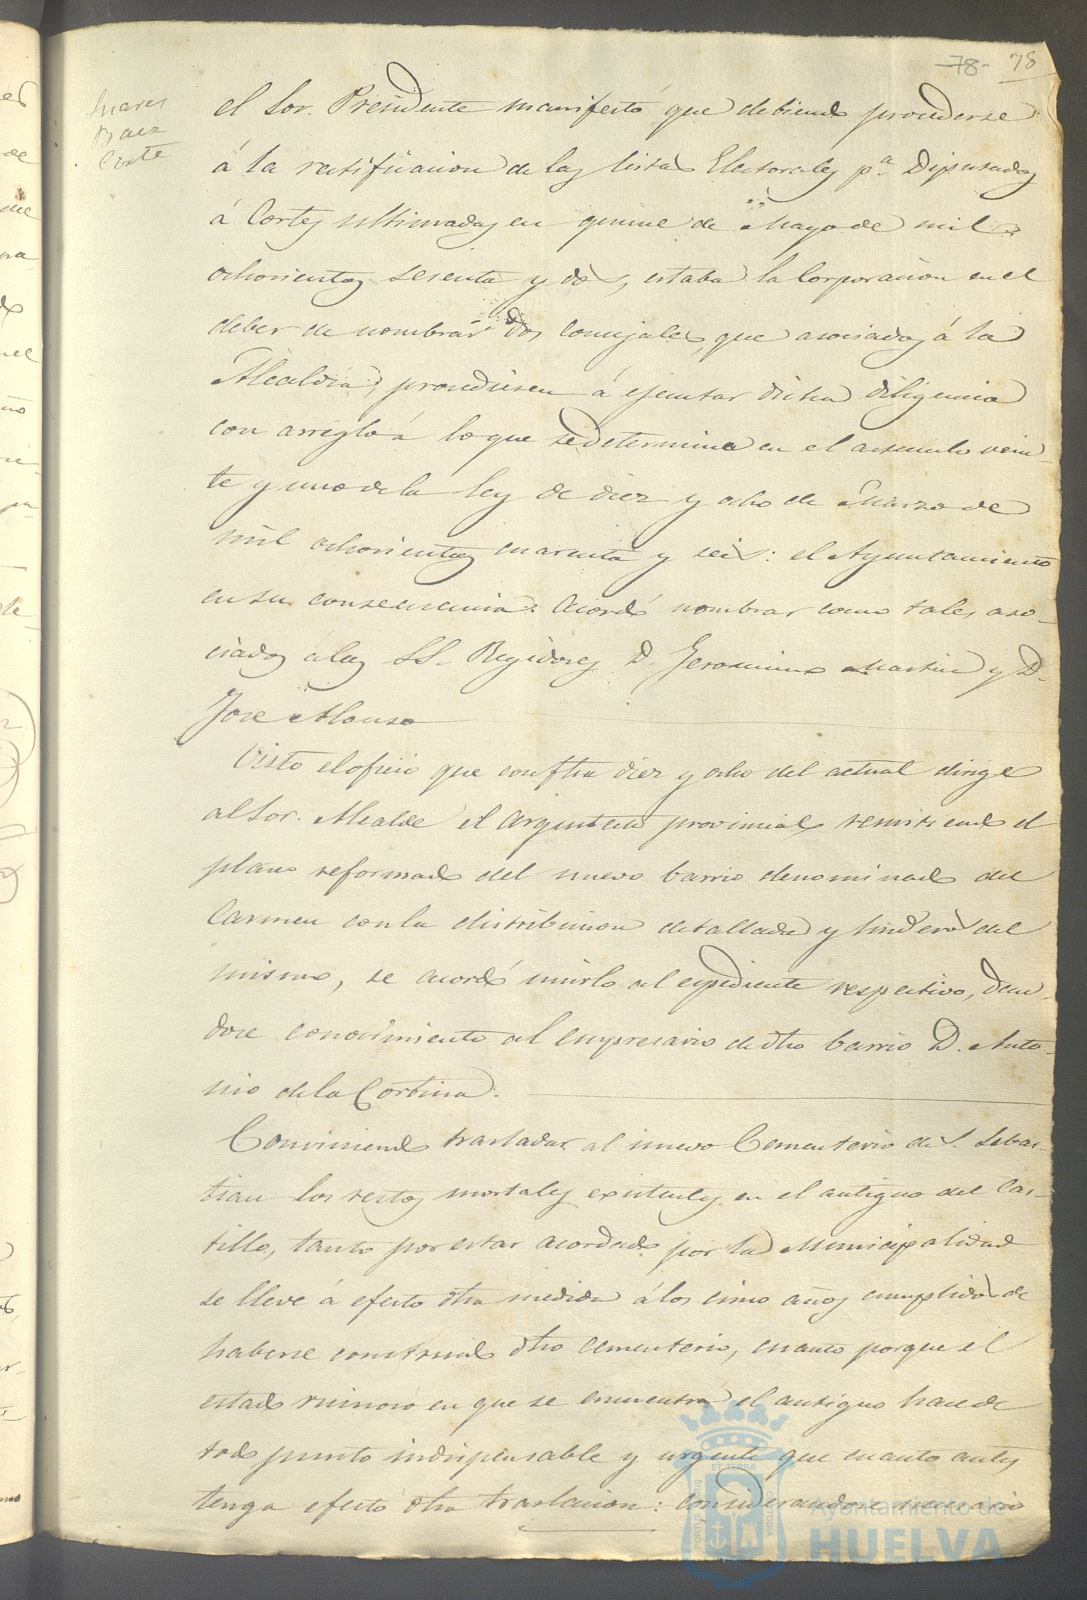 -78- 78
Suarez
Baez
Corte
el Sor. Presidente manifestó que debiendo procederse
á la rectificacion de las listas Electorales pª. Diputados
á Cortes ultimadas en quince de Mayo de mil
ochocientos sesenta y dos, estaba la Corporacion en el
deber de nombrar dos Concejales, que asociados á la
Alcaldia, procediesen á ejecutar dicha diligencia
con arreglo á lo que se determina en el articulo vein-
te y uno de la ley de diez y ocho de Marzo de
mil ochocientos cuarenta y seis: el Ayuntamiento
en su consecuencia acordó nombrar como tales aso-
ciados á los SS. Regidores D. Geronimo Martin y D.
Jose Alonso
Visto el oficio que con fha diez y ocho del actual dirige
al Sor. Alcalde el Arquitecto provincial remitiendo el
plano reformado del nuevo barrio denominado del
Carmen con la distribucion detallada y linderos del
mismo, se acordó unirlo al espediente respectivo, dan-
dose conocimiento al empresario de dho barrio D. Anto-
nio de la Cortina.
Conviniendo trasladar al nuevo Cementerio de S. Sebas-
tian los restos mortales existentes en el antiguo del Cas-
tillo, tanto por estar acordado por la Municipalidad
se lleve á efecto dha medida á los cinco años cumplidos de
haberse construido dho cementerio, cuanto porque el
estado ruinoso en que se encuentra el antiguo hace de
todo punto indispensable y urgente que cuanto antes
tenga efecto dha traslacion: considerandose necesario
Ayuntamiento de
HUELVA